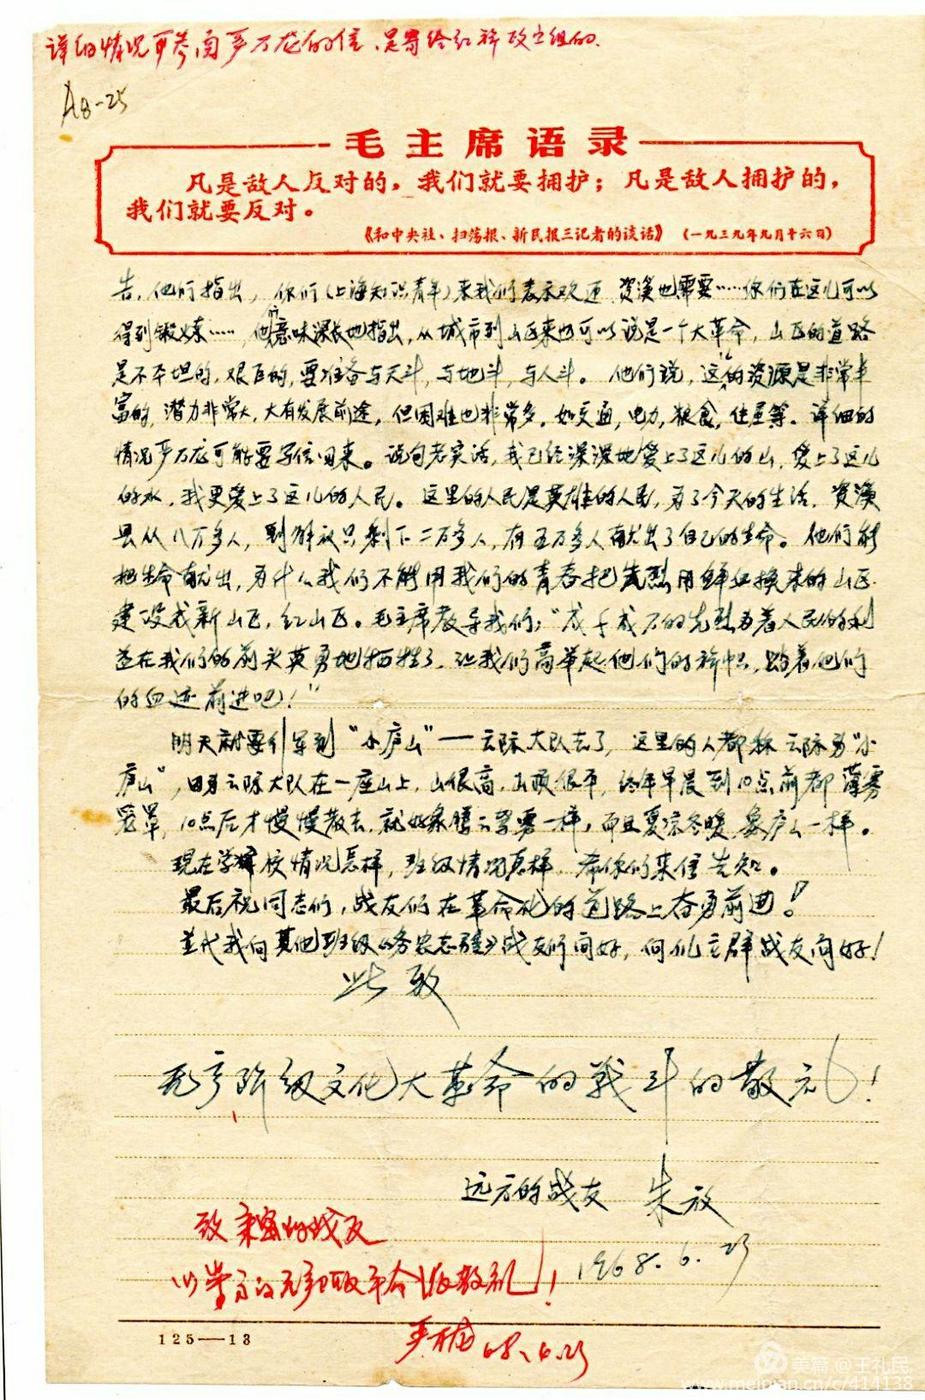 详细情况可参阅严万龙的信,是寄给红梅政宣组的.
A8-25
毛主席语录
凡是敌人反对的,我们就要拥护;凡是敌人拥护的,
我们就要反对。
《和中央社、扫荡报、新民报三记者的谈话》(一九三九年九月十六日)
告,他们指出,你们(上海知识青年)来我们表示欢迎,资溪也需要……你们在这儿可以
得到锻炼……,他们意味深长地指出,从城市到山区来也可以说是一个大革命,山区的道路
是不平坦的,艰巨的,要准备与天斗,与地斗,与人斗。他们说,这儿的资源是非常丰
富的,潜力非常大,大有发展前途,但困难也非常多,如交通,电力,粮食,住屋等。详细的
情况严万龙可能要写信回来。说句老实话,我已经深深地爱上了这儿的山,爱上了这儿
的水,我更爱上了这儿的人民。这里的人民是英雄的人民,为了今天的生活,资溪
县从八万多人,到解放只剩下二万多人,有五万多人献出了自己的生命。他们能
把生命献出,为什么我们不能用我们的青春把先烈用鲜血换来的山区
建设成新山区,红山区。毛主席教导我们:“成千成万的先烈为着人民的利
益在我们的前头英勇地牺牲了,让我们高举起他们的旗帜,踏着他们
的血迹前进吧!”
明天就要行军到“小庐山”——云际大队去了,这里的人都称云际为“小
庐山”,因为云际大队在一座山上,山很高,山顶很平,终年早晨到10点前都薄雾
笼罩,10点后才慢慢散去,就如条腾云驾雾一样,而且夏凉冬暖,象庐山一样。
现在学校情况怎样,班级情况怎样,希你们来信告知。
最后祝同志们,战友们在革命化的道路上奋勇前进!
并代我向其他班级《务农志强》战友们问好,向《》主群战友问好!
此致
无产阶级文化大革命的战斗的敬礼!
远方的战友 朱放
1968.6.23
致 亲密的战友
以学习的无产阶级革命化敬礼!
严万龙 68.6.23
125—13
美篇 @王礼民
www.meipian.cn/c/414138